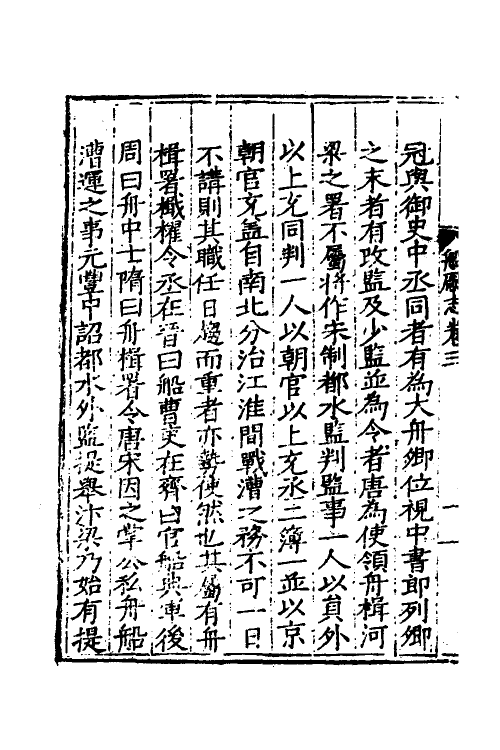 船廠志卷三
冠與御史中丞同者有為大舟卿位視中書郎列卿
之末者有改監及少監並為令者唐為使領舟楫河
渠之署不屬將作宋制都水監判監事一人以員外
以上充同判一人以朝官以上充丞二簿一並以京
朝官充蓋自南北分治江淮間戰漕之務不可一日
不講則其職任日趨而重者亦勢使然也其屬有舟
楫署檝櫂令丞在晉曰船曹吏在齊曰官船典軍後
周曰舟中士隋曰舟楫署令唐宋因之掌公私舟船
漕運之事元豐中詔都水外監提舉汴梁乃始有提